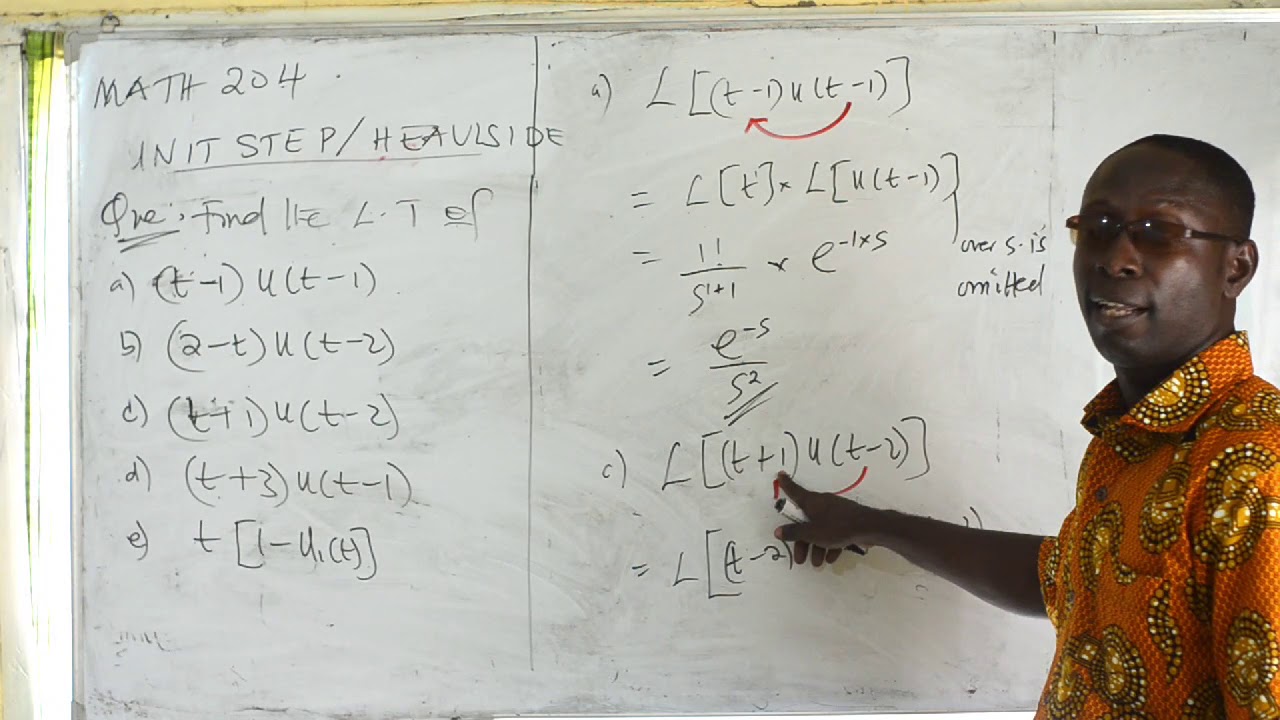 MATH 204
UNIT STEP/HEAVLSIDE
Que: Find the L.T of
a) (t-1) u(t-1)
b) (2-t) u(t-2)
c) (t+1) u(t-2)
d) (t+3) u(t-1)
e) t [1-u₁(t)]
a) L[(t-1) u(t-1)]
= L[t] × L[u(t-1)]
over s is
omitted
= 1!/s¹⁺¹ × e^(-1×s)
= e^(-s)/s²
c) L[(t+1) u(t-2)]
= L[(t-2)